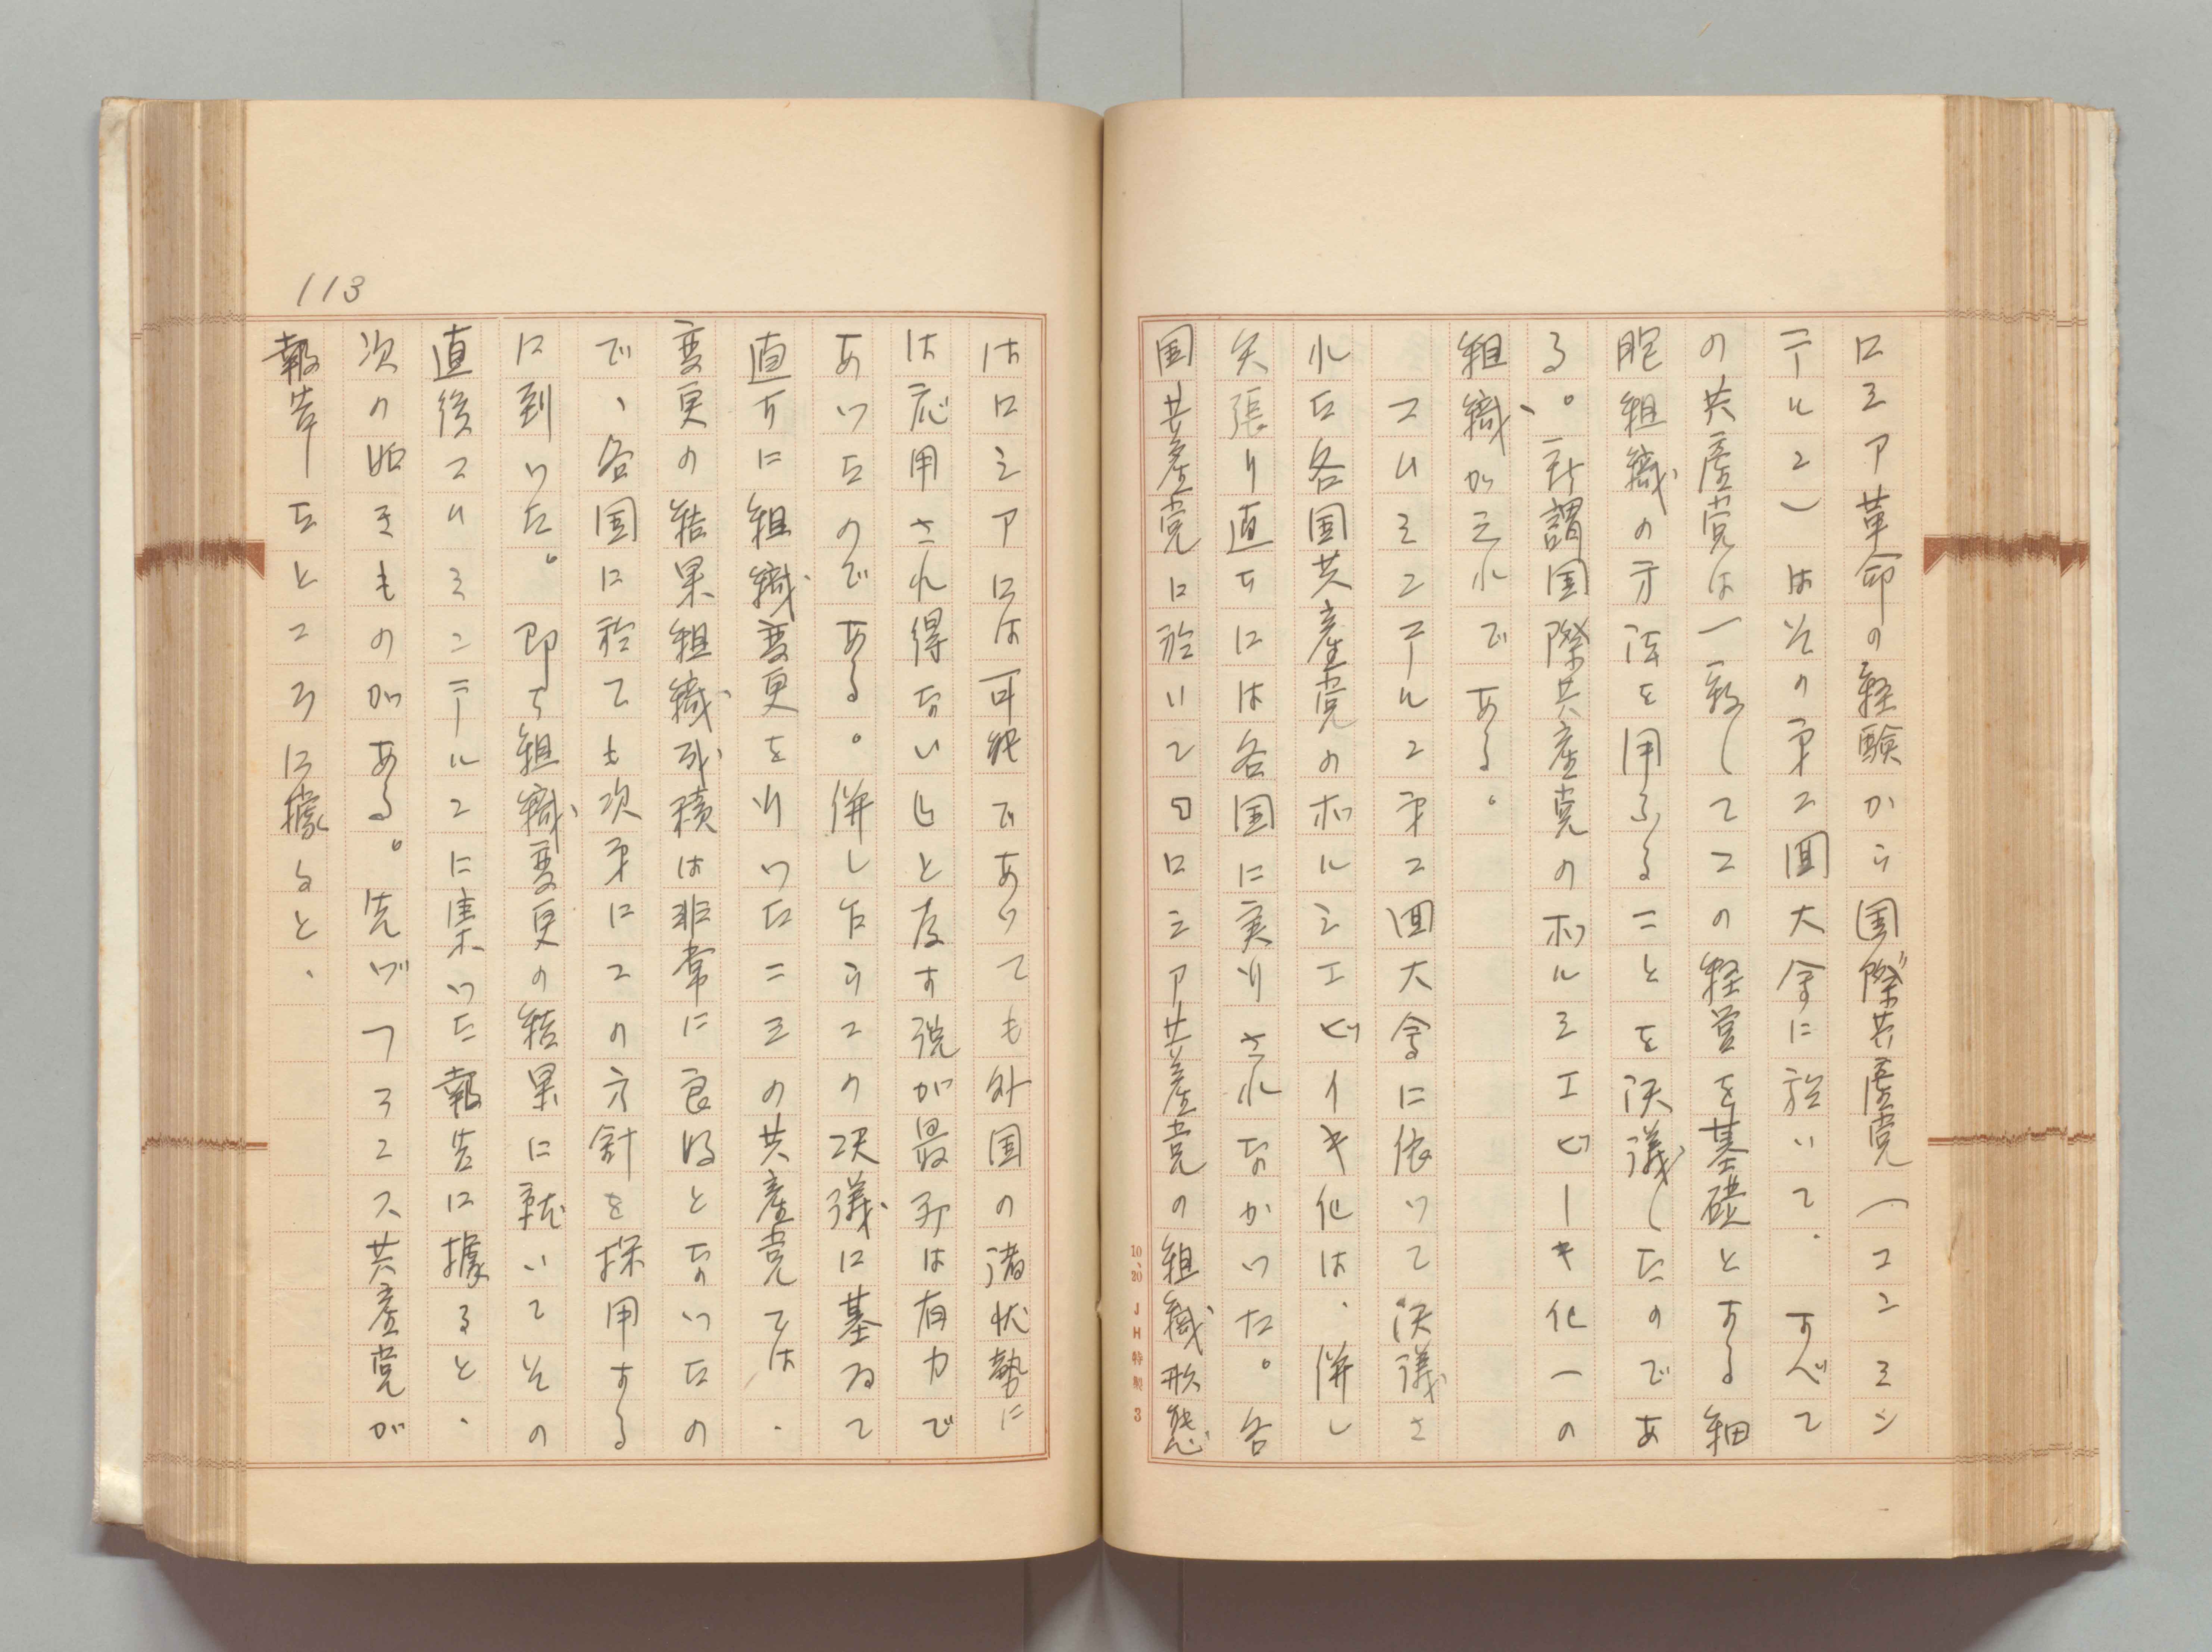 ロシア革命の経験から国際共産党（コンミン
テルン）はその第二回大会に於いて、すべて
の共産党は一致してこの経営を基礎とする細
胞組織の方法を用ふることを決議したのであ
る。所謂国際共産党のボルシエビーキ化－の
組織がそれである。
コムミンテルン第二回大会に依つて決議さ
れた各国共産党のボルシエビイキ化は、併し
矢張り直ちには各国に実行されなかつた。各
国共産党に於いてロシア共産党の組織形態
10、20 JH特製 3
113
はロシアには可能であつても外国の諸状勢に
は応用され得ないと反す説が最初は有力で
あつたのである。併し乍らこの決議に基ゐて
直ちに組織変更を行つた二三の共産党では、
変更の結果組織成積は非常に良好となつたの
で、各国に於ても次第にこの方針を採用する
に到つた。即ち組織変更の結果に就いてその
直後コムミンテルンに集つた報告に據ると、
次の如きものがある。先づフランス共産党が
報告したところに據ると、